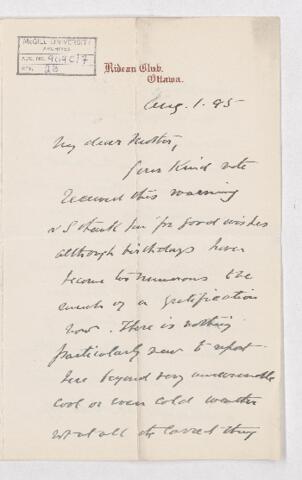 McGILL UNIVERSITY
ARCHIVES
ACC. NO. 909C/7
REF. 28
Rideau Club,
Ottawa.
Aug. 1. 85
My dear Mother,
Your kind note
received this morning
& I thank you for good wishes
although birthdays have
become too numerous to be
much of a gratification
now. There is nothing
particularly new to report
here beyond very unseasonable
cool or even cold weather
not at all the correct thing